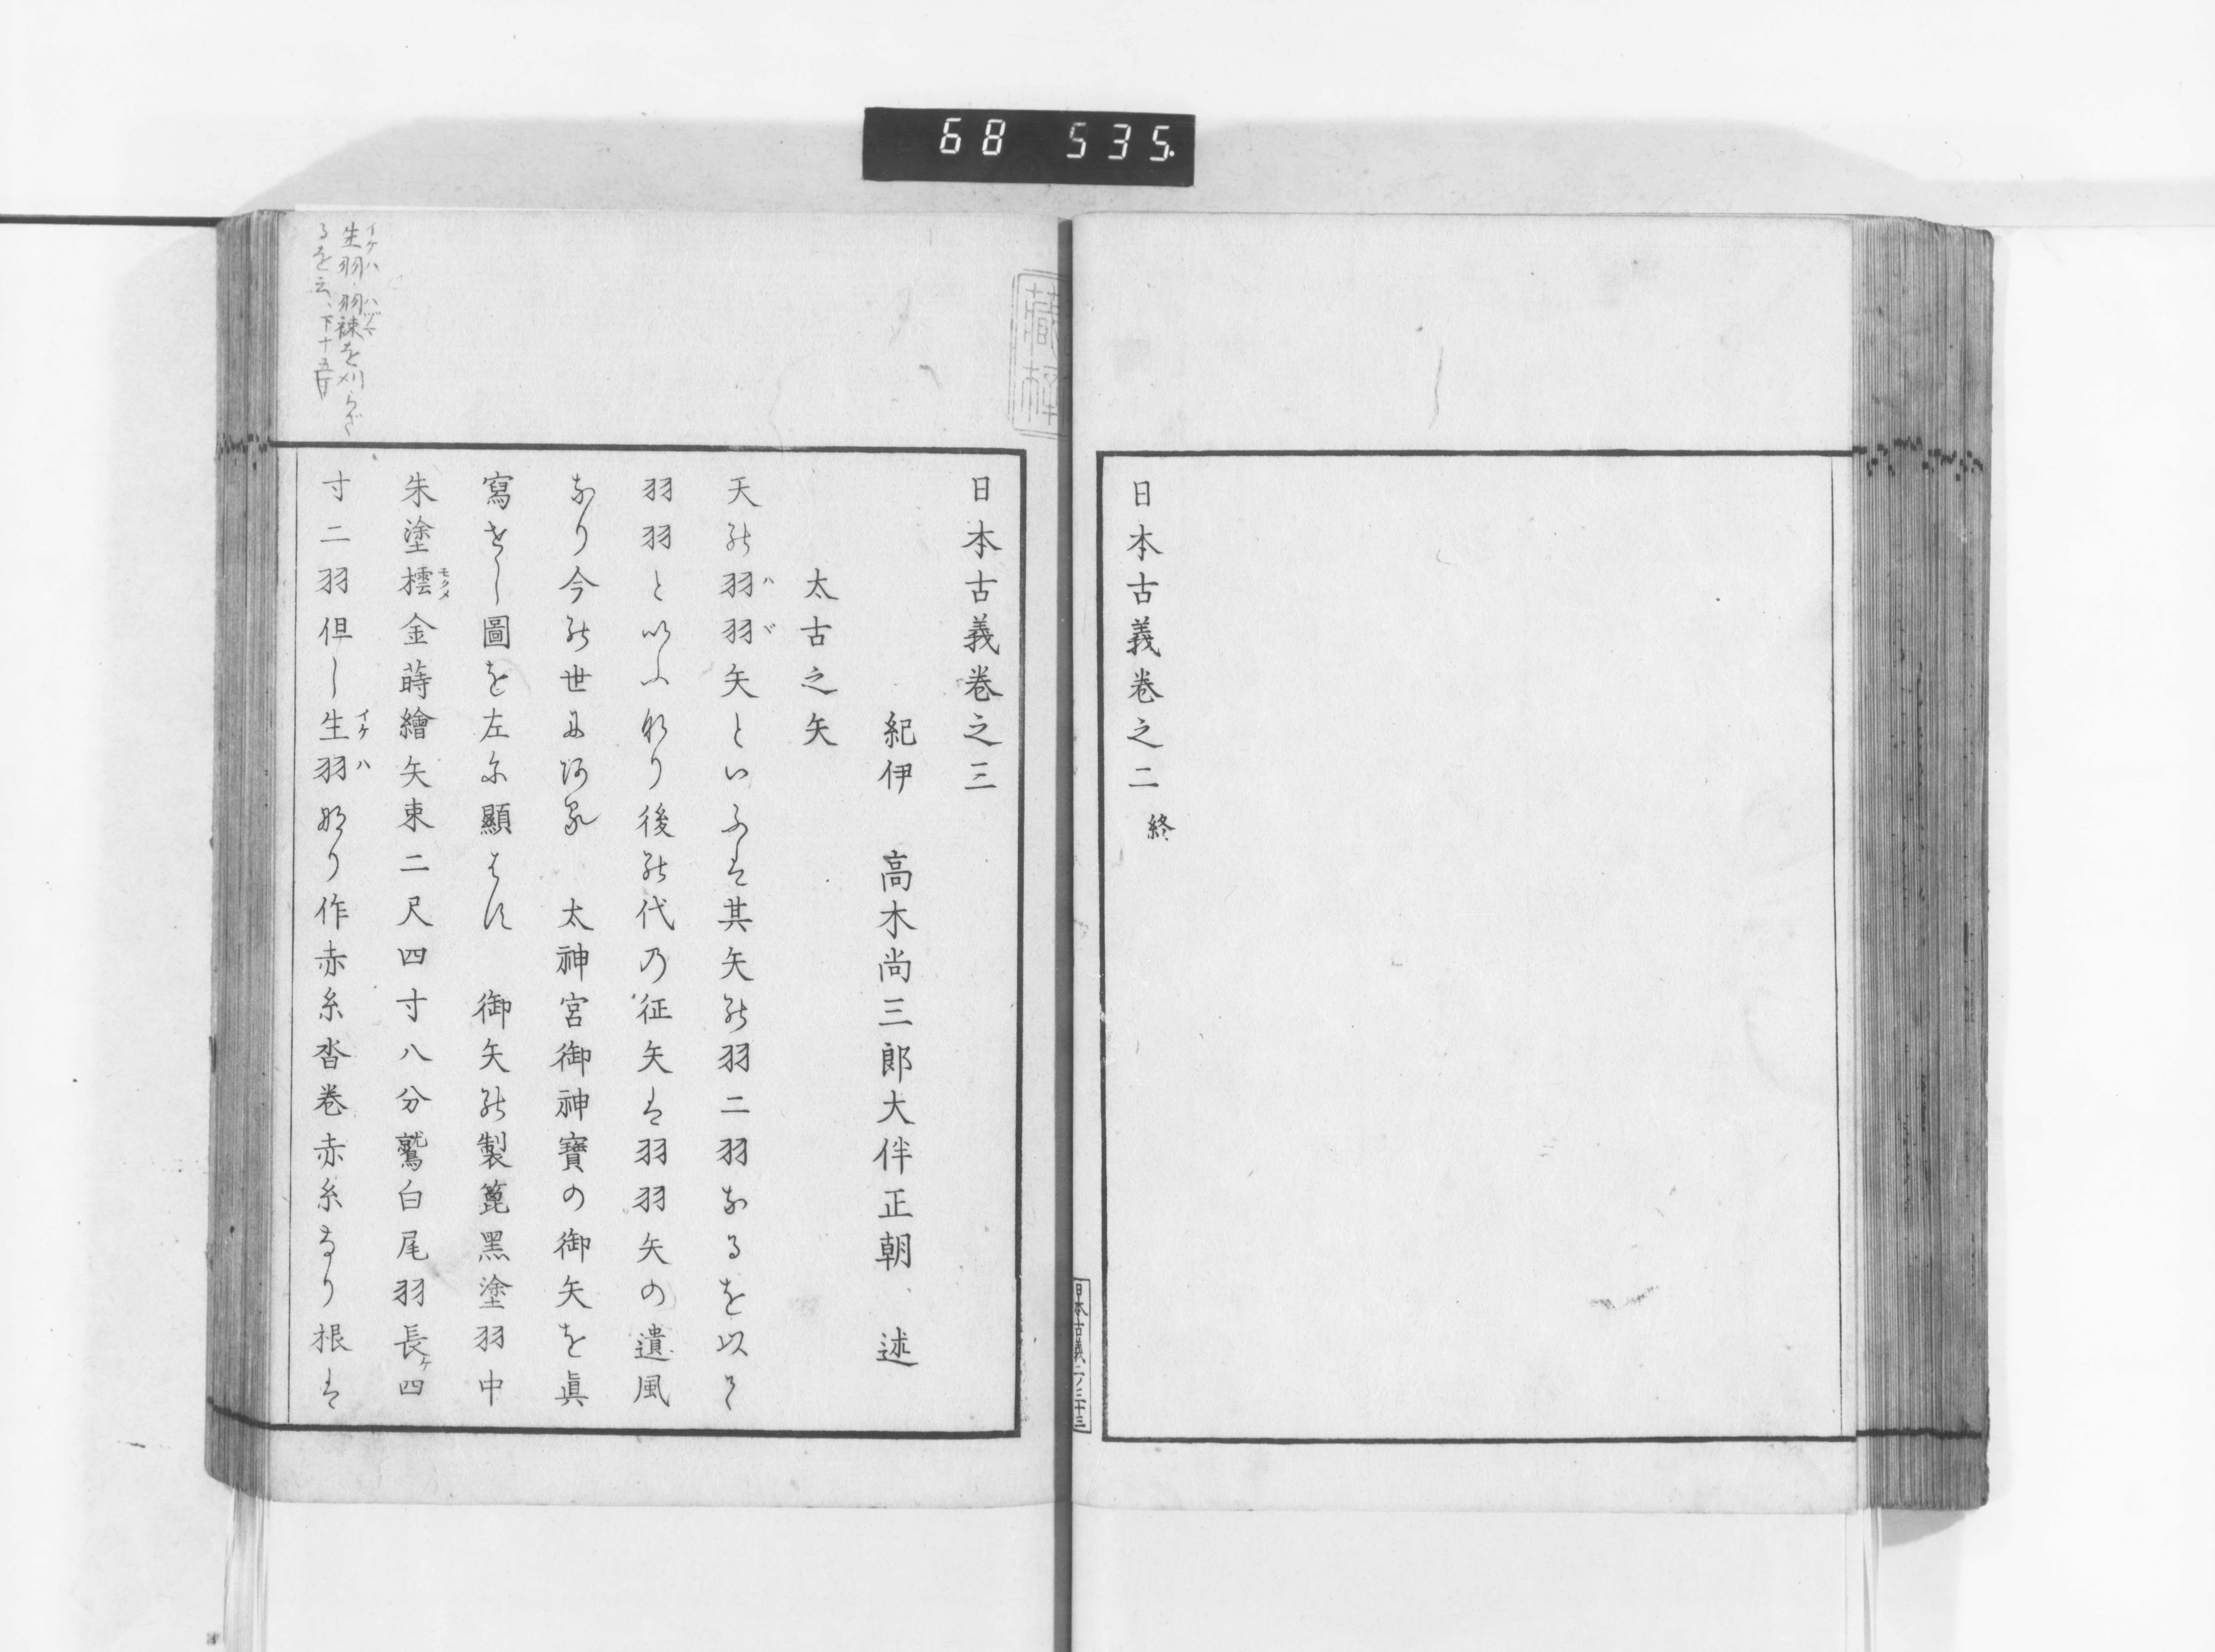 68 535.
日本古義卷之二 終
日本古義二ノ三十三
日本古義卷之三
紀伊 高木尚三郎大伴正朝 述
太古之矢
天の羽羽矢といふは其矢の羽二羽なるを以て
ハバ
羽羽といふなり後の代乃征矢は羽羽矢の遺風
なり今の世にある 太神宮御神寶の御矢を眞
寫せし圖を左に顯はす 御矢の製箆黑塗羽中
朱塗橒金蒔繪矢束二尺四寸八分鷲白尾羽長ケ四
モクメ
寸二羽但し生羽なり作赤糸沓卷赤糸なり根は
イケハ
生羽、羽楝を刈らざ
イケハ
るを云、下十五